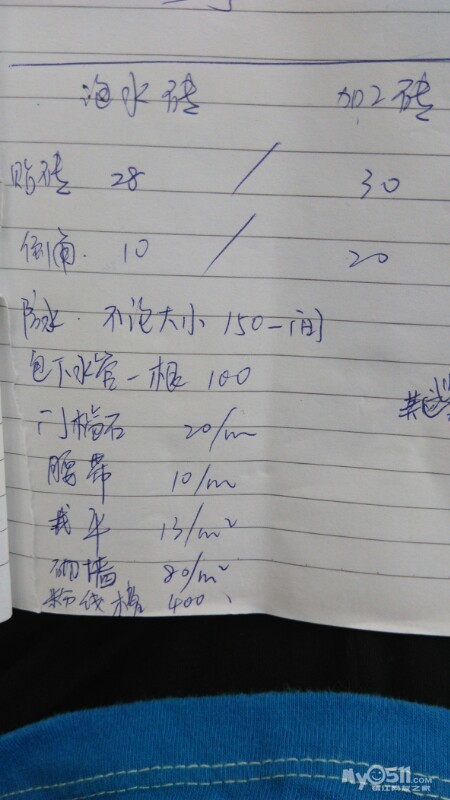 泡水砖 加工砖
贴砖 28 / 30
倒角. 10 / 20
防水. 不论大小 150一间
包下水管一根 100
门档石 20/m
腰带 10/m
找平 13/m²
砌墙 80/m²
粉线槽 400、
My0511.com
镇江网友之家